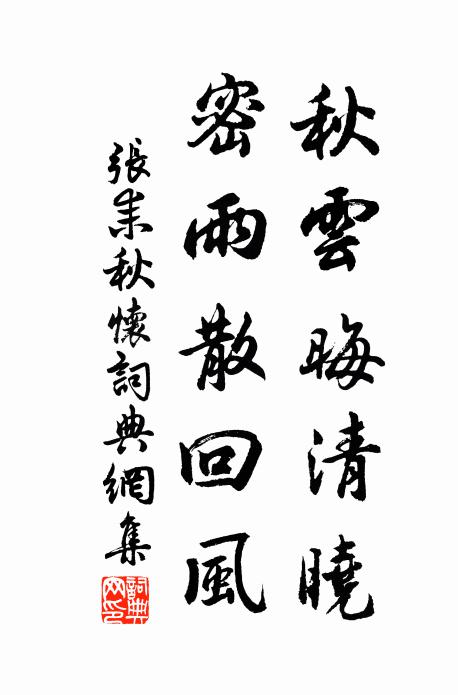 秋雲晦清曉
密雨散回風
張耒秋懷詞典網集
詞典網印